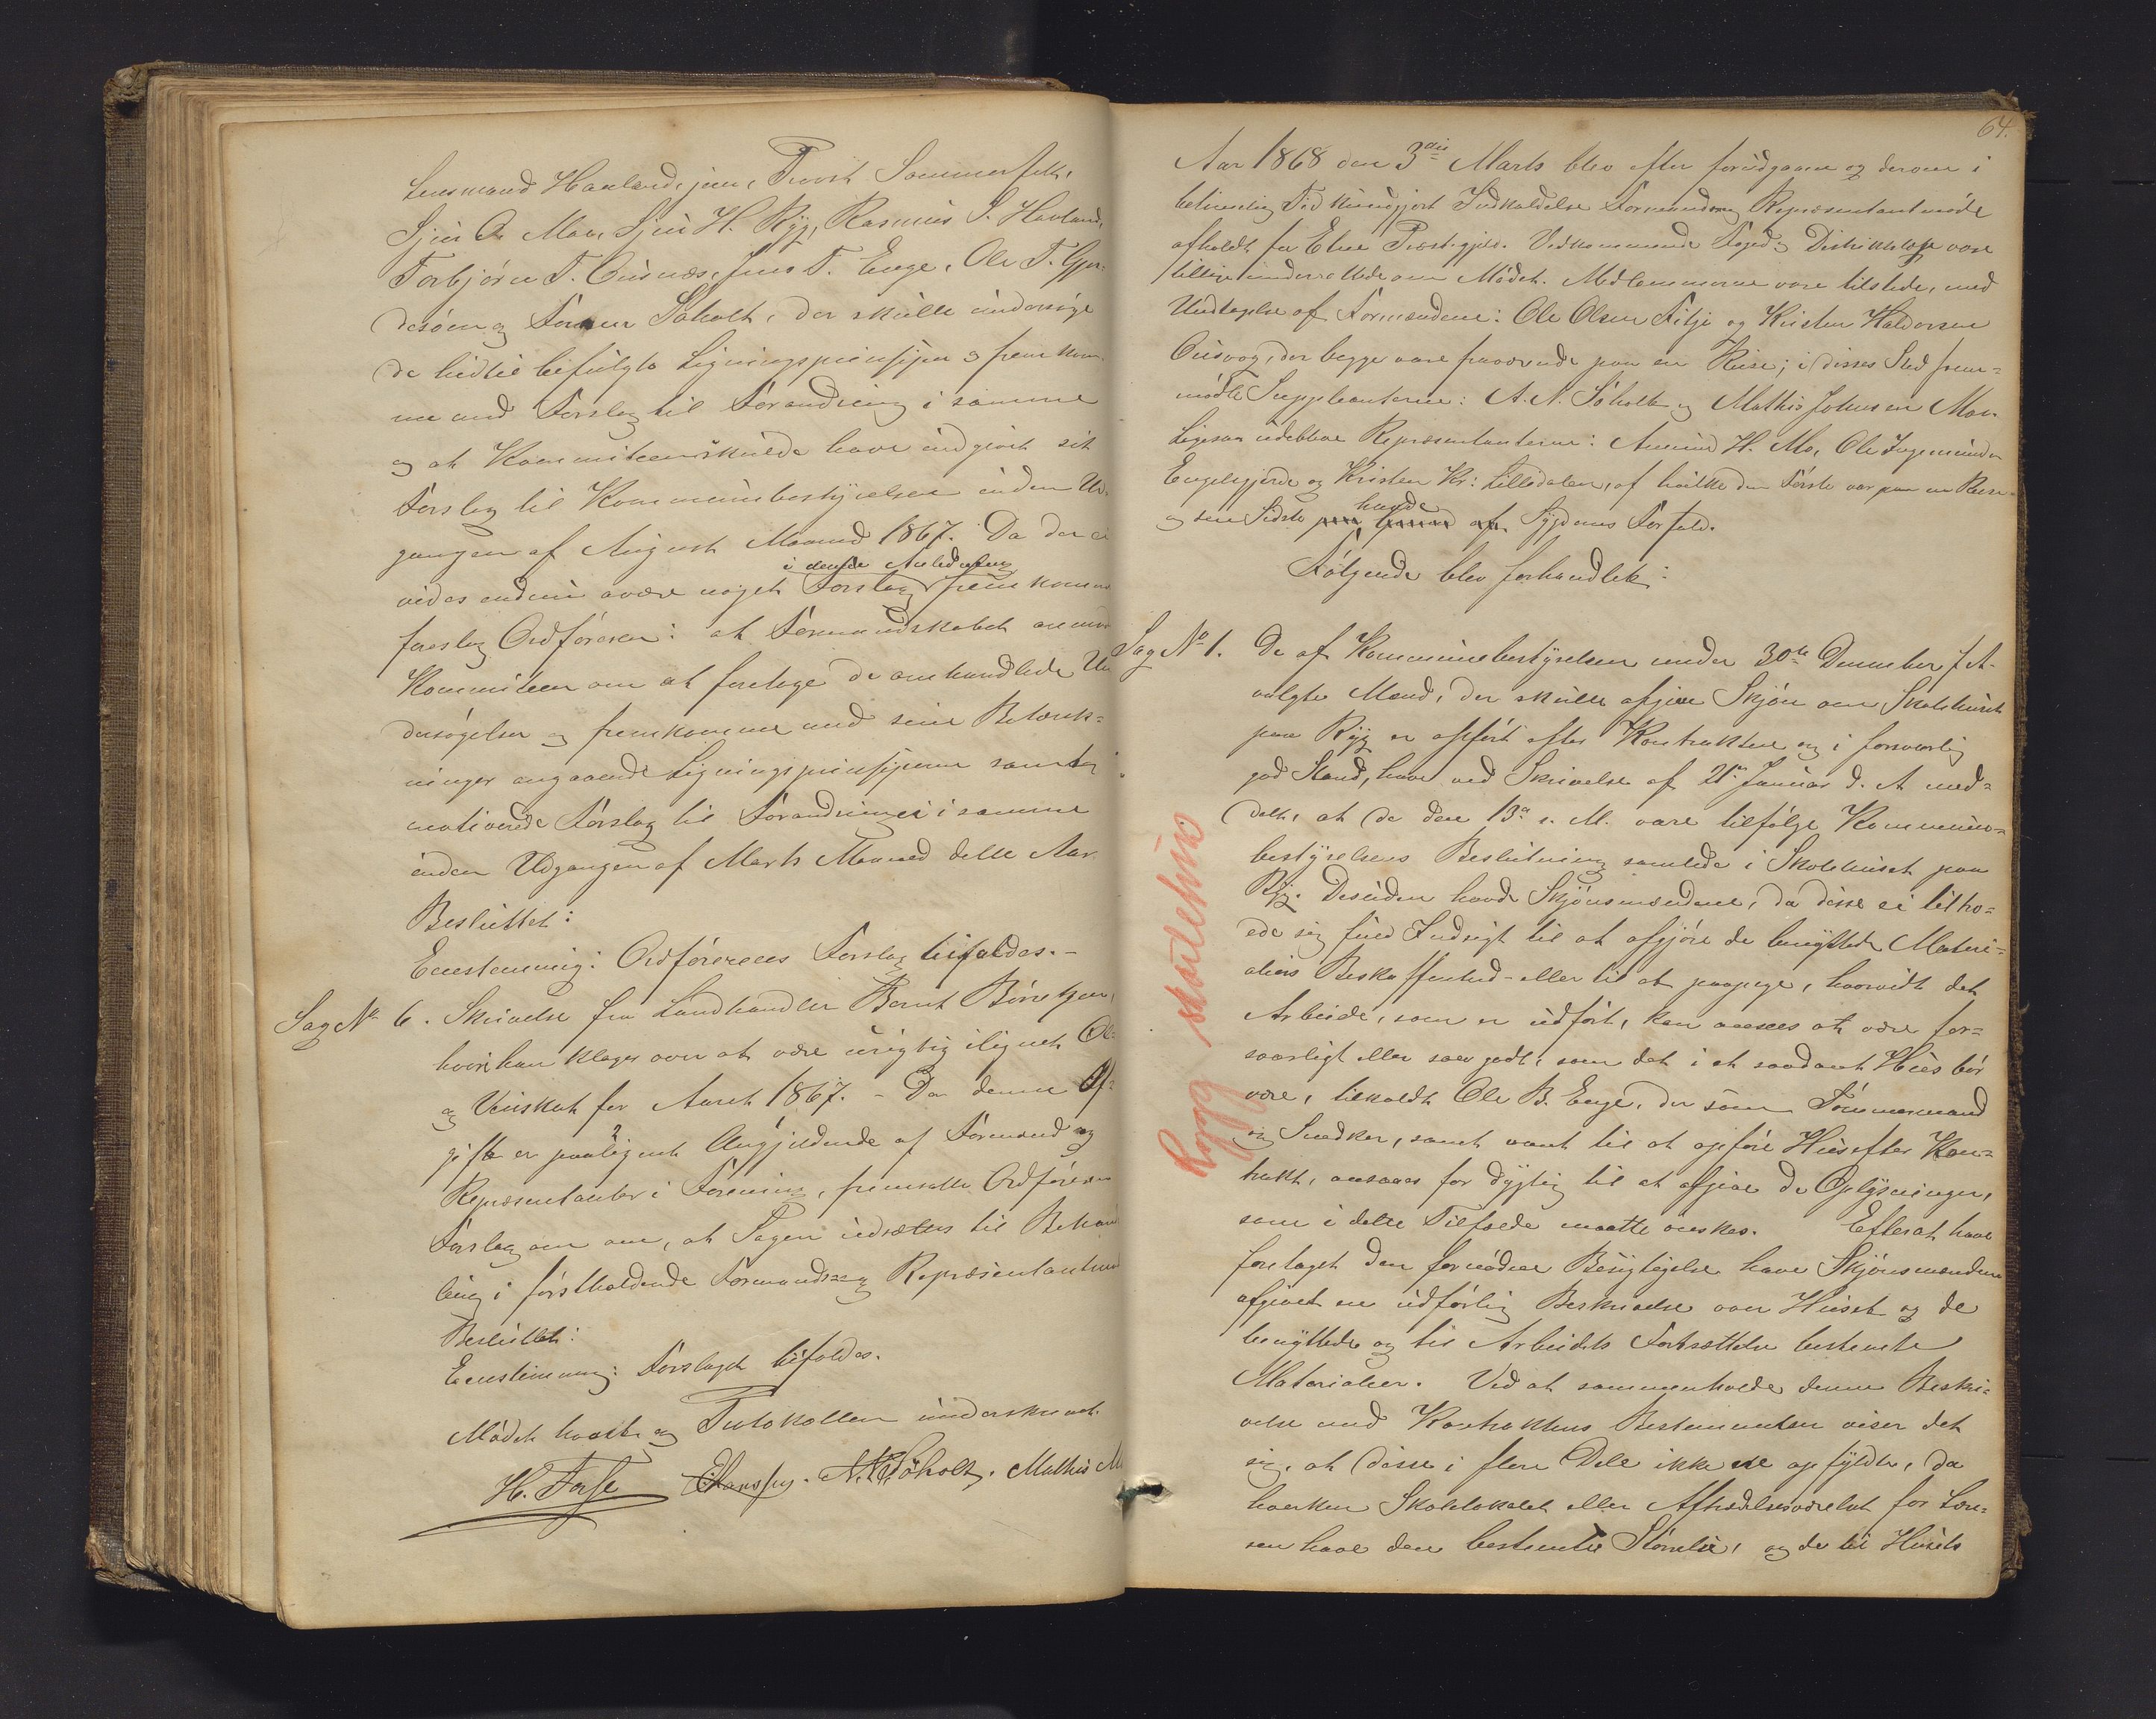 Lensmand Havlandsjun, Provst Sommerfelt,
Sjur A. Mo, Sjur H. Ryg, Rasmus S. Havland,
Torbjørn T. Ousnæs, Jens T. Enge, Ole T. Gjer-
desøen og Formen Søholt, der skulle undersøge
de hidtil befulgte Ligningsprinsiper og fremkom-
me med Forslag til Forandring i samme
og at Kommiteen skulde have indgivet sit
Forslag til Kommunebestyrelsen inden Ud-
gangen af August Maaned 1867. Da der ei
i denne Anledning
vides endnu være noget Forslag fremkommet
foreslog Ordføreren: at Formandskabet anmod
Kommiteen om at foretage de omhandlede Un
dersøgelser og fremkomme med sine Betænk-
ninger angaaende Ligningsprinsiperne samt
motiverede Forslag til Forandringer i samme
inden Udgangen af Marts Maaned dette Aar.
Besluttet:
Eenstemmig: Ordførerens Forslag bifaldes. -
Sag No 6. Skrivelse fra Landhandler Bernt
hvori han klager over at være urigtig ilignet Øl-
og Vinskat for Aaret 1867. - Da denne Af-
gift er paalignet Angjældende af Formænd og
Repræsentanter i Forening, fremsatte Ordføreren
Forslag om, at Sagen udsættes til Behand
ling i førstholdende Formands- og Repræsentantmøde
Besluttet:
Eenstemmig: Forslaget bifaldes.
Mødet hævet og Protokollen underskrevet.
H. Forse Søholt. Mathis M
64.
Aar 1868 den 3die Marts blev efter forudgaaen og derom i
betimelig Tid kundgjort Indkaldelse Formands og Repræsentantmøde
afholdt for Ekne Præstegjeld. Vedkommende Foged og Distriktslæge vare
tillige underrettede om Mødet. Medlemmerne vare tilstede, med
Undtagelse af Formændene: Ole Olsen Fitje og Kristen Haldorsen
Ousvog, der begge vare fraværende paa en Reise; i disses Sted frem-
mødte Suppleanterne: A. N. Søholt og Mathis Johnsen Mo.
Ligesaa udebleve Repræsentanterne: Amund H. Mo, Ole Ingemundsen
Engelsgjerde og Kristen Kr: Lillidalen, af hvilke den Første var paa en Reise
havde
og den Sidste Sygdoms Forfald.
Følgende blev forhandlet:
Sag No 1. De af Kommunebestyrelsen under 30te December f. A.
valgte Mænd, der skulle afgive Skjøn om Skolehuset
paa Ryg er opført efter Kontrakten og i forsvarlig
god Stand, have ved Skrivelse af 21de Januar d. A. med-
delt, at de den 13de s. M. vare tilfølge Kommune-
bestyrelsens Beslutning samlede i Skolehuset paa
Ryg. Desuden havde Skjønsmændene, da disse ei tiltro-
ede sig fuld Indsigt til at afgjøre de benyttede Materi-
aliers Beskaffenhed eller til at paapege, hvorvidt det
Arbeide, som er udført, kan ansees at være for-
svarligt eller saa godt, som det i et saadant Huus bør
være, tilkaldt Ole B. Enge, der som Tømmermand
og Snedker, samt vant til at opføre Huus efter Kon-
trakt, ansaaes for dygtig til at afgive de Oplysninger,
som i dette Tilfælde maatte ønskes. Efterat have
foretaget den fornødne Besigtigelse have Skjønsmændene
afgivet en udførlig Beskrivelse over Huset og de
benyttede og til Arbeidets Fortsættelse bestemte
Materialier. Ved at sammenholde denne Beskri-
velse med Kontraktens Bestemmelser viser det
sig, at disse i flere Dele ikke ere opfyldte, da
hverken Skolelokalet eller Aftrædelsesværelset for Lære-
ren have den bestemte Størrelse, og de til Husets
Rygg skulehus